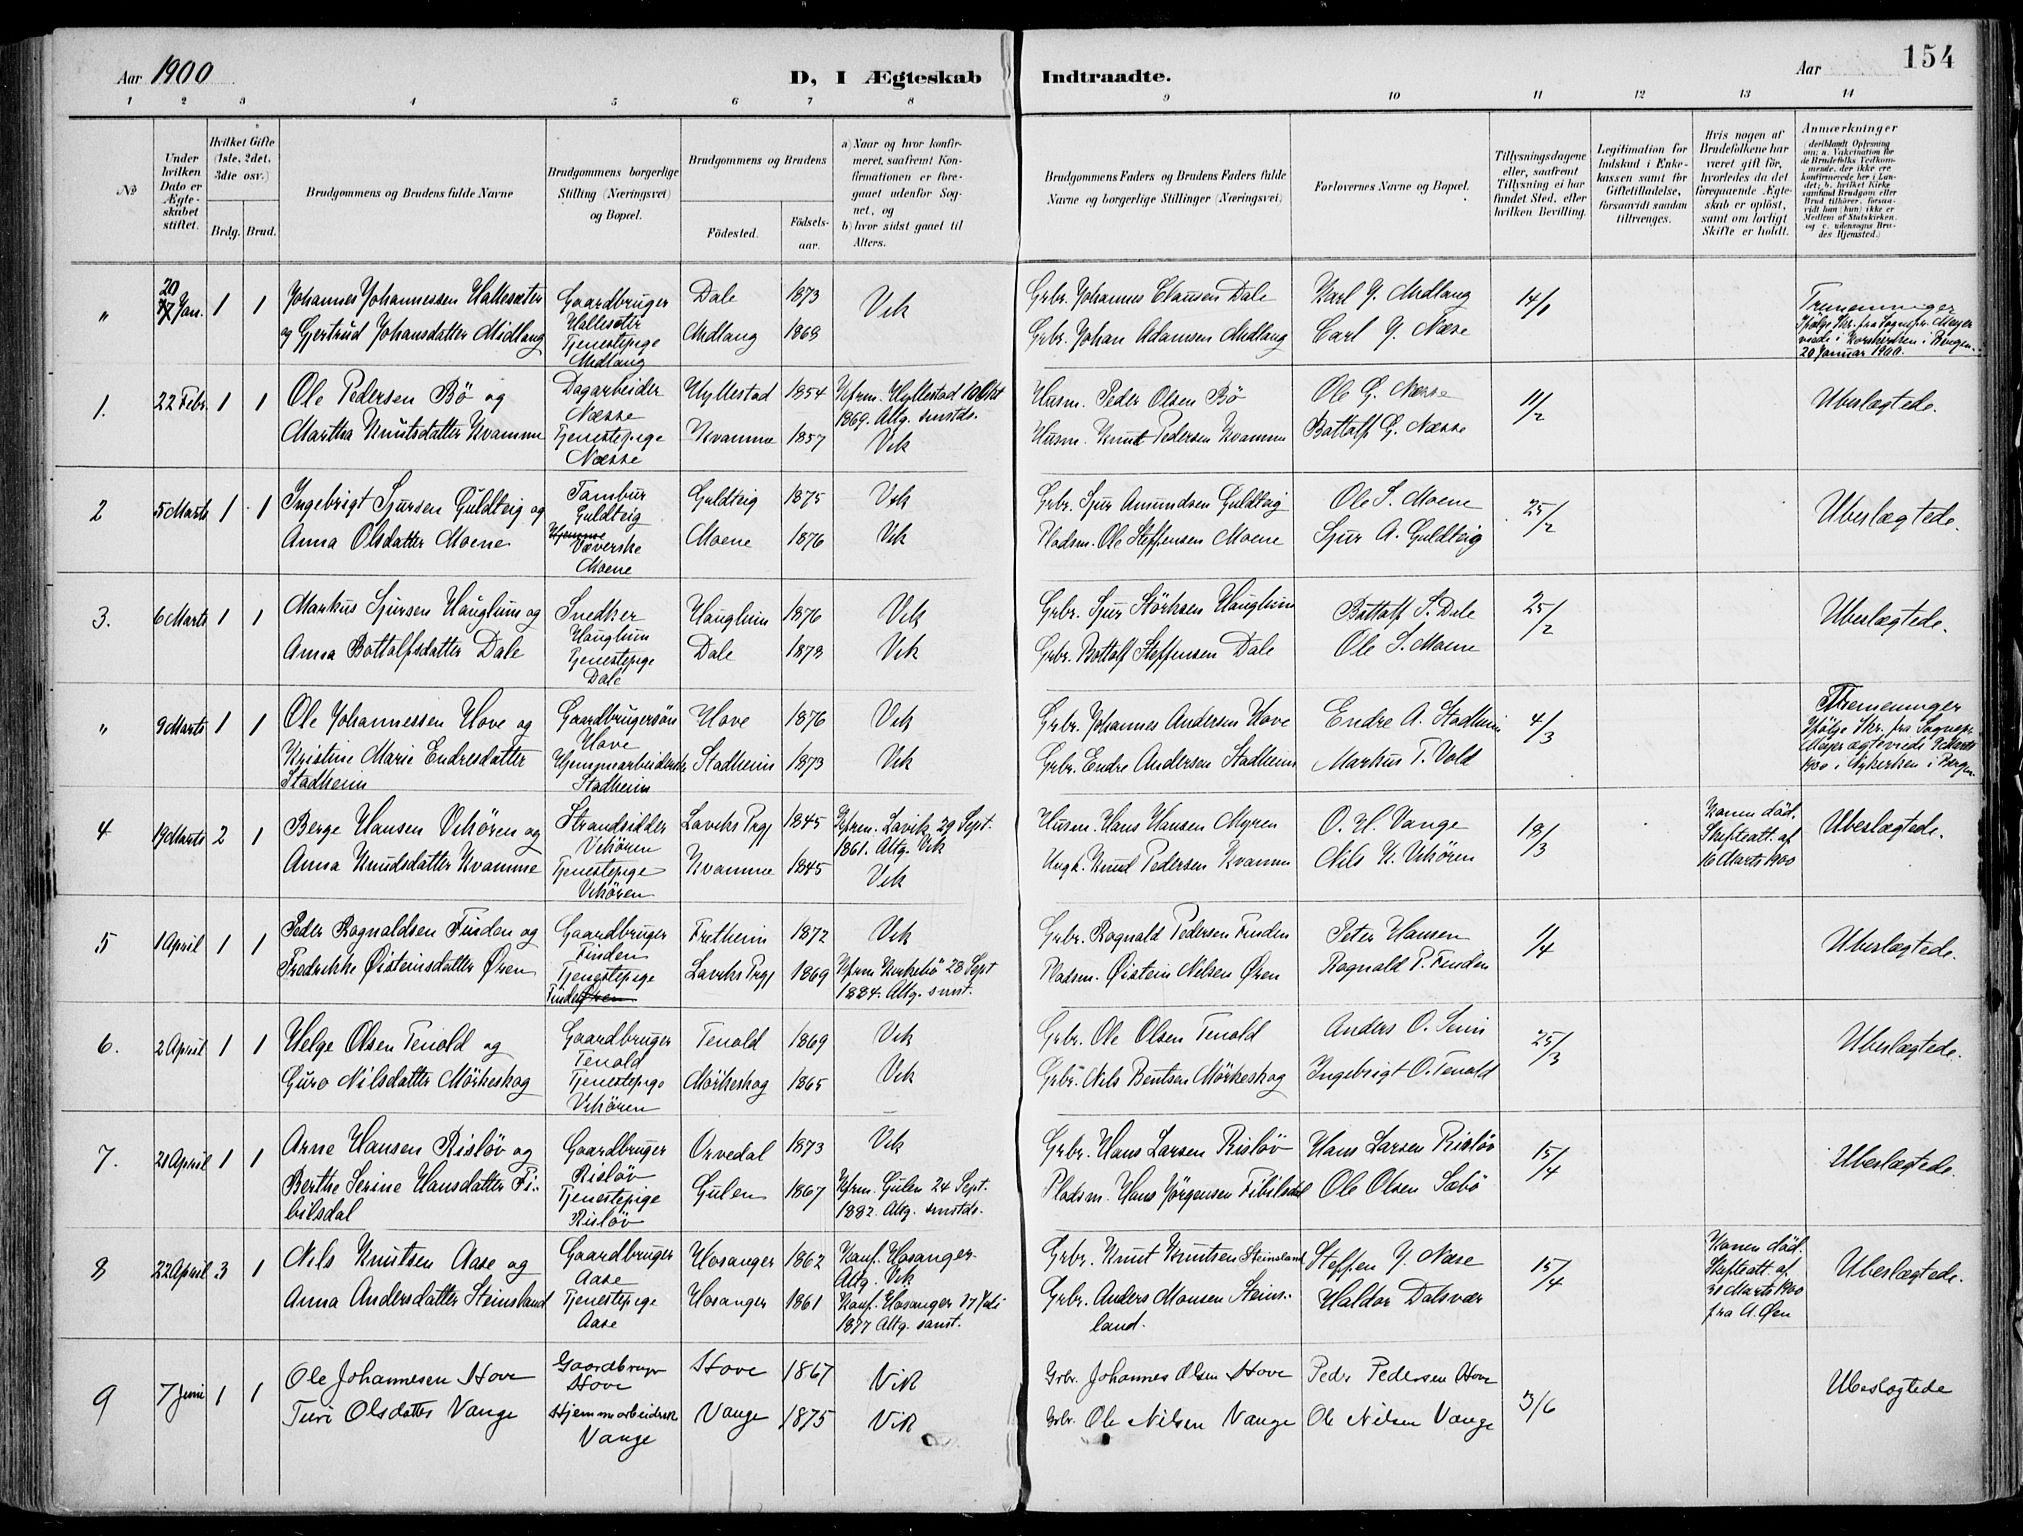 Aar 1900
D, I Ægteskab
Indtraadte.
Aar
154
1 2 3 4 5 6 7 8 9 10 11 12 13 14
No
Under hvilken Dato er Ægteskabet stiftet.
Hvilket Gifte (1ste, 2det, 3die osv.)
Brdg. Brud.
Brudgommens og Brudens fulde Navne
Brudgommens borgerlige Stilling (Næringsvei) og Bopæl.
Brudgommens og Brudens
Födested.
Födselsaar.
a) Naar og hvor konfirmeret, saafremt Konfirmationen er foregaaet udenfor Sognet, og
b) hvor sidst gaaet til Alters.
Brudgommens Faders og Brudens Faders fulde Navne og borgerlige Stillinger (Næringsvei)
Forlovernes Navne og Bopæl.
Tillysningsdagene eller, saafremt Tillysning ei har fundet Sted, efter hvilken Bevilling.
Legitimation for Indskud i Enkekassen samt for Giftetilladelse, forsaavidt saadan tiltrænges.
Hvis nogen af Brudefolkene har været gift för, hvorledes da det foregaaende Ægteskab er oplöst, samt om lovligt Skifte er holdt.
Anmærkninger
(deriblandt Oplysning om: a. Vakcination for de Brudefolks Vedkommende, der ikke ere konfirmerede her i Landet; b. hvilket Kirkesamfund Brudgom eller Brud tilhører, forsaavidt han (hun) ikke er Medlem af Statskirken, og c. udensogns Brudes Hjemsted.)
" 20 Jan. 1 1 Johannes Johannessen Hallesæter Gaardbruger Hallesæter Dale 1873 Vik Grbr. Johannes Clausen Dale Karl J. Midlang 14/1 Tremenninger
og Gjertrud Johansdatter Midlang Tjenestepige Midlang Midlang 1868 Grbr. Johan Adamsen Midlang Carl J. Næse Ifølge Skr. fra Sognepr. Meyer
viede i Korskirken i Bergen
20 Januar 1900.
1. 22 Febr. 1 1 Ole Pedersen Bö og Dagarbeider Næsse Hyllestad 1854 Kfrm. Hyllestad 10 Okt 1869. Altg. smstds. Husm. Peder Olsen Bö Ole G. Næsse 11/2 Ubeslægtede.
Martha Knutsdatter Kvamme Tjenestepige Næsse Kvamme 1857 Vik Husm. Knut Pedersen Kvamme Battolf G. Næsse
2 5 Marts 1 1 Ingebrigt Sjursen Guldteig og Tambur Guldteig Guldteig 1875 Vik Grbr. Sjur Amundsen Guldteig Ole S. Moene 25/2 Ubeslægtede.
Anna Olsdatter Moene Hjemme Væverske Moene Moene 1876 Vik Pladsm. Ole Steffensen Moene Sjur A. Guldteig
3. 6 Marts 1 1 Markus Sjursen Hauglum og Snedker Hauglum Hauglum 1876 Vik Grbr. Sjur Störksen Hauglum Battolf S. Dale 25/2 Ubeslægtede.
Anna Bottolfsdatter Dale Tjenestepige Dale Dale 1878 Vik Grbr. Bottolf Steffensen Dale Ole S. Moene
" 9 Marts 1 1 Ole Johannessen Hove og Gaardbrugersön Hove Hove 1876 Vik Grbr. Johannes Andersen Hove Endre A. Stadheim 4/3 Tremeninger
Kristine Marie Endresdatter Hjemmearbeiderske Stadheim Stadheim 1873 Vik Grbr. Endre Andersen Stadheim Markus T. Vold Ifølge Skr. fra Sognepr.
Stadheim Meyer ægteviede Marts
1900 i Nykirken i Bergen
4 19 Marts 2 1 Berge Hansen Vikören og Strandsidder Vikören Laviks Prgj 1845 Kfrm. Lavik 29 Sept. 1861. Altg. Vik Husm. Hans Hansen Myren O. H. Vange 18/3 Konen död. Skifteatt. af 16 Marts 1900 Ubeslægtede.
Anna Knudsdatter Kvamme Tjenestepige Vikören Kvamme 1845 Vik Ungk. Knud Pedersen Kvamme Nils K. Vikören
5 1 April 1 1 Peder Rognaldsen Finden og Gaardbruger Finden Fretheim 1872 Vik Grbr. Rognald Pedersen Finden Peter Hansen 1/4 Ubeslægtede.
Fredrikke Øisteinsdatter Øren Tjenestepige Finden Øren Laviks Prgj 1869 Kfrm Kirkebö 28 Sept 1884. Altg. smst. Pladsm. Øistein Nelsen Øren Rognald P. Finden
6. 2 April 1 1 Helge Olsen Tenold og Gaardbruger Tenold Tenold 1869 Vik Grbr. Ole Olsen Tenold Anders O. Seim 25/3 Ubeslægtede.
Guro Nilsdatter Mörkeskog Tjenestepige Vikören Mörkeskog 1865 Vik Grbr. Nils Bentsen Mörkeskog Ingebrigt O. Tenold
7. 21 April 1 1 Arne Hansen Risløv og Gaardbruger Risløv Orvedal 1873 Vik Grbr. Hans Larsen Risløv Hans Larsen Risløv 15/4 Ubeslægtede.
Berthe Serine Hansdatter Fi- Tjenestepige Risløv Gulen 1867 Kfrm. Gulen 24 Sept. 1882. Altg. smstds. Pladsm. Hans Jörgensen Fibilsdal Ole Olsen Sæbö
bilsdal
8 22 April 3 1 Nils Knutsen Aase og Gaardbruger Aase Hosanger 1862 Konf. Hosanger. Altg. Vik Grbr. Knut Knutsen Steinsland Steffen J. Næse 15/4 Konen död. Skifteatt. af 31 Marts 1900 fra A. Øen Ubeslægtede.
Anna Andersdatter Steinsland Tjenestepige Aase Hosanger 1861 Konf. Hosanger Juli 1877 Altg. samst. Grbr. Anders Monsen Steins- Haldor Dalsvær
land.
9 7 Juni 1 1 Ole Johannesen Hove Gaardbruger Hove Hove 1867 Vik Grbr. Johannes Olsen Hove Peder Pedersen Hove 3/6 Ubeslægtede
Turi Olsdatter Vange Hjemmearbeidersk Vange Vange 1875 Vik Grbr. Ole Nilsen Vange Ole Nilsen Vange